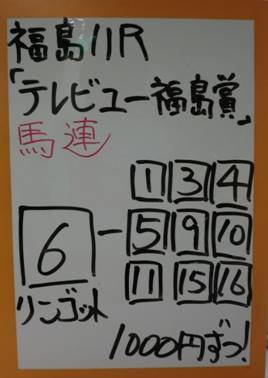 福島11R
「テレビュー福島賞」
馬連
1 3 4
6 - 5 9 10
11 15 16
リンゴット
1000円ずつ!